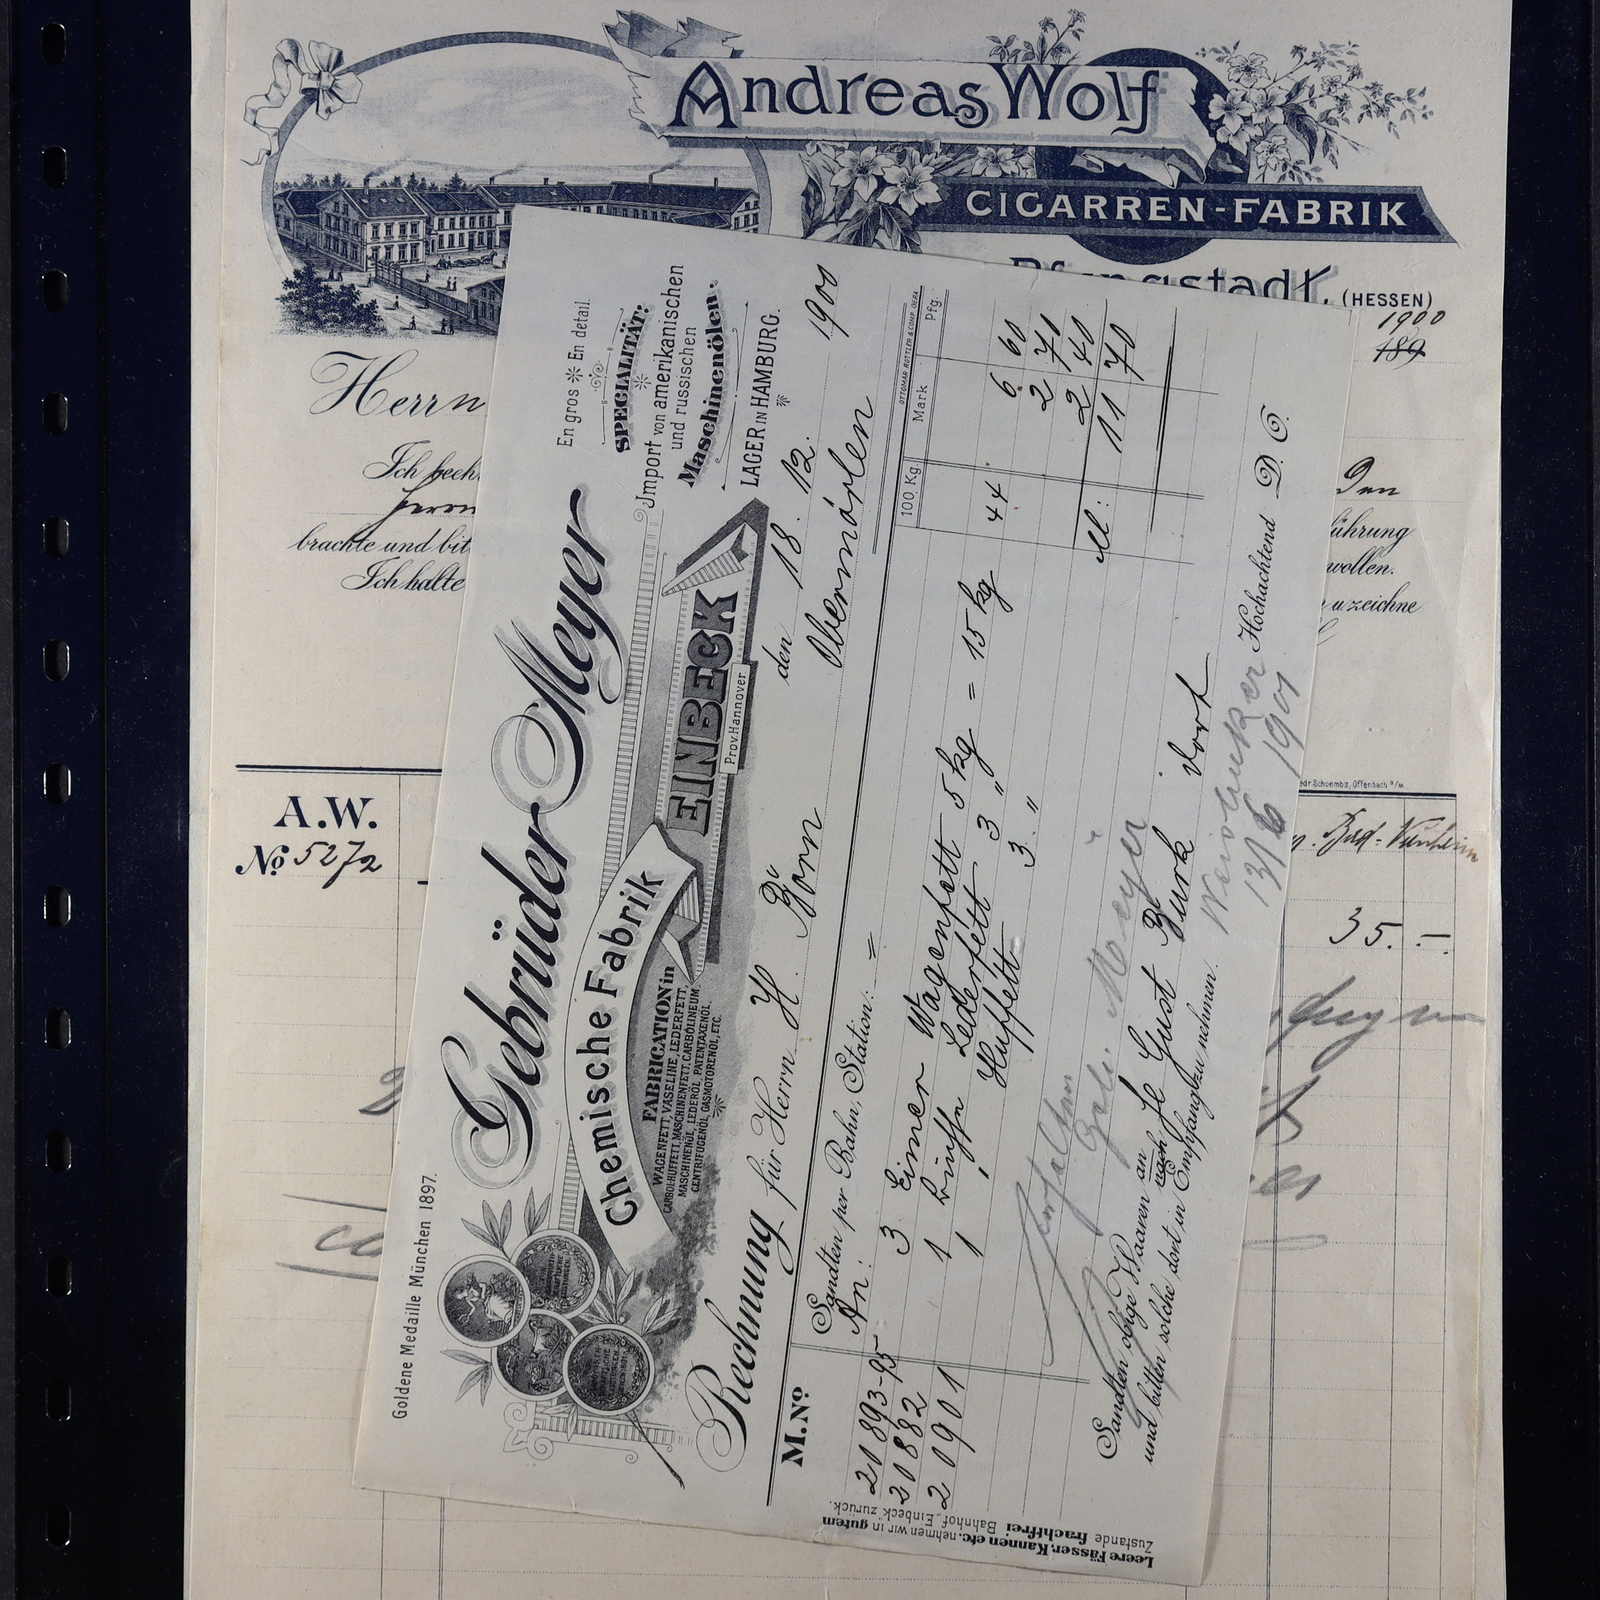 Andreas Wolf
CIGARREN-FABRIK
Pfungstadt, (HESSEN)
1900
189
Herrn
Ich beeh
Herrn
brachte und bit
Ich halte
Den
führung
wollen.
u zeichne
A.W.
No 5272
35. —
Goldene Medaille München 1897.
Gebrüder Meyer
Chemische Fabrik
EINBECK
Prov. Hannover
FABRIGATION in
WAGENFETT, VASELINE, LEDERFETT,
CARBOLHUFFETT, MASCHINENFETT, CARBOLINEUM,
MASCHINENÖL, LEDERÖL, PATENTAXENÖL,
CENTRIFUGENÖL, GASMOTORENÖL, ETC.
En gros En detail.
SPECIALITÄT:
Import von amerikanischen
und russischen
Maschinenölen.
LAGER IN HAMBURG.
den 18. 12. 1900
Rechnung für Herrn H. Born Obermörlen
M. No
100 Kg. Mark Pfg.
Sandten per Bahn, Station: =
An:
20893-95 3 Eimer Wagenfett 5 kg = 15 kg 44 6. 60
20882 1 Lederfett 3 " 2 71
20901 1 " Huffett 3. " 2 40
M: 11 70
Meyer
Sandten obige Waaren an H. Gust Burk dort
nach
und bitten solche dort in Empfang zu nehmen.
Hochachtend D. O.
13/6 1901
Leere Fässer, Kannen etc. nehmen wir in gutem
Zustande frachtfrei Bahnhof Einbeck zurück.